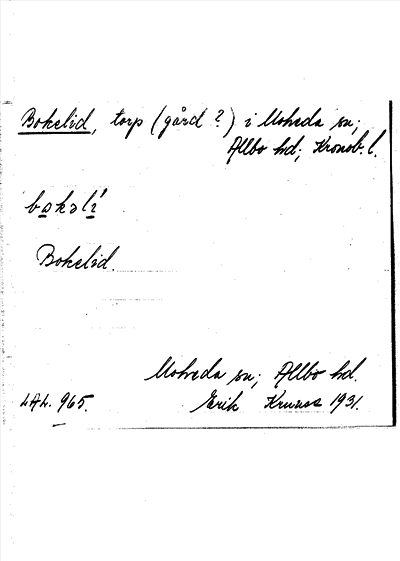 Bokelid, torp (gård ?) i Moheda sn;
Allbo hd; Kronob. l.
bokəli'
Bokelid.
Moheda sn; Allbo hd.
LAL. 965. Erik Kruuse 1931.